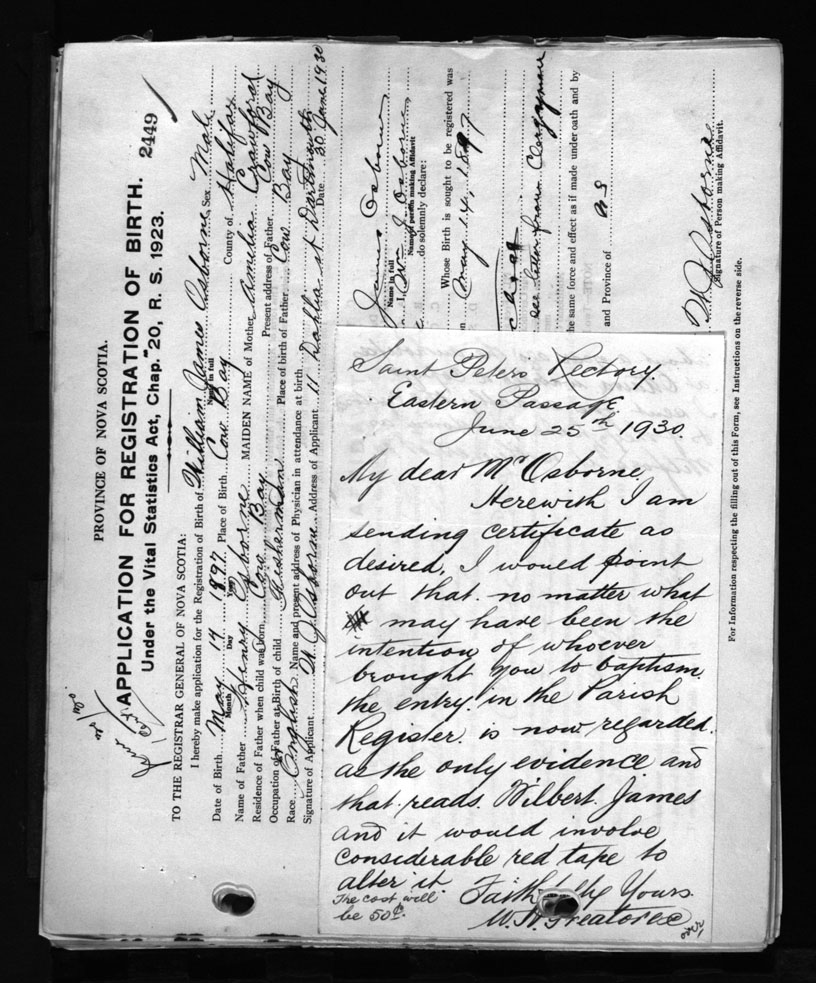 PROVINCE OF NOVA SCOTIA.
APPLICATION FOR REGISTRATION OF BIRTH. 2449
Under the Vital Statistics Act, Chap. 20, R. S. 1923.
TO THE REGISTRAR GENERAL OF NOVA SCOTIA:
I hereby make application for the Registration of Birth of William James Osborne Sex Male
Name in full
Date of Birth May 14 1897 Place of Birth Cow Bay County of Halifax
Month Day Year
Name of Father Henry Osborne MAIDEN NAME of Mother Amelia Crawford
Residence of Father when child was born Cow Bay Present address of Father Cow Bay
Occupation of Father at Birth of child Fisherman Place of birth of Father Cow Bay
Race English Name and present address of Physician in attendance at birth
Signature of Applicant W J Osborne Address of Applicant 11 Dahlia st Dartmouth
Date 30 June 1930
James Osborne
Name in full
I, Wm J Osborne
Name of person making Affidavit
do solemnly declare:
Whose Birth is sought to be registered was
on May 14, 1897
see letter from Clergyman
the same force and effect as if made under oath and by
and Province of NS
W J Osborne
Signature of Person making Affidavit.
For Information respecting the filling out of this Form, see Instructions on the reverse side.
Saint Peters Rectory
Eastern Passage
June 25th 1930.
My dear Mr Osborne
Herewith I am
sending certificate as
desired. I would point
out that no matter what
may have been the
intention of whoever
brought you to baptism
the entry in the Parish
Register is now regarded
as the only evidence and
that reads. Wilbert James
and it would involve
considerable red tape to
alter it.
Faithfully Yours
The cost will
be 50¢.
W. H. Greatorex
over